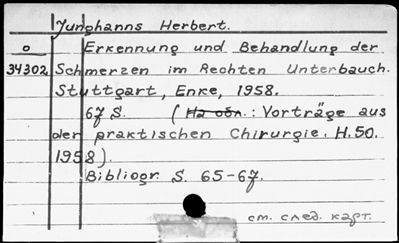 Junghanns Herbert.
0 Erkennung und Behandlung der
34302 Schmerzen im Rechten Unterbauch.
Stuttgart, Enke, 1958.
67 S. (На обл.: Vorträge aus
der praktischen Chirurgie. H. 50.
1958).
Bibliogr. S. 65-67.
см. след. карт.